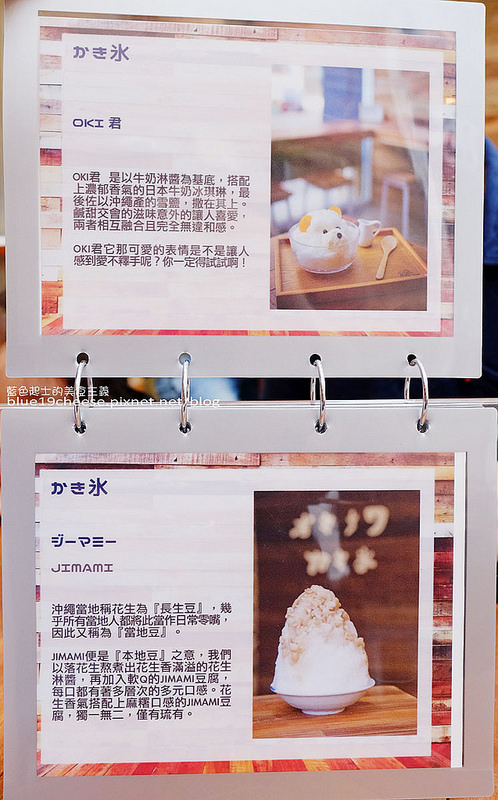 かき氷
OKI 君
OKI君 是以牛奶淋醬為基底，搭配
上濃郁香氣的日本牛奶冰琪琳，最
後佐以沖繩產的雪鹽，撒在其上。
鹹甜交會的滋味意外的讓人喜愛，
兩者相互融合且完全無違和感。
OKI君它那可愛的表情是不是讓人
感到愛不釋手呢？你一定得試試啊！
藍色起士的美食主義
blue19cheese.pixnet.net/blog
かき氷
ジーマミー
JIMAMI
沖繩當地稱花生為『長生豆』，幾
乎所有當地人都將此當作日常零嘴，
因此又稱為『當地豆』。
JIMAMI便是『本地豆』之意，我們
以落花生熬煮出花生香滿溢的花生
淋醬，再加入軟Q的JIMAMI豆腐，
每口都有著多層次的多元口感。花
生香氣搭配上麻糬口感的JIMAMI豆
腐，獨一無二，僅有琉有。